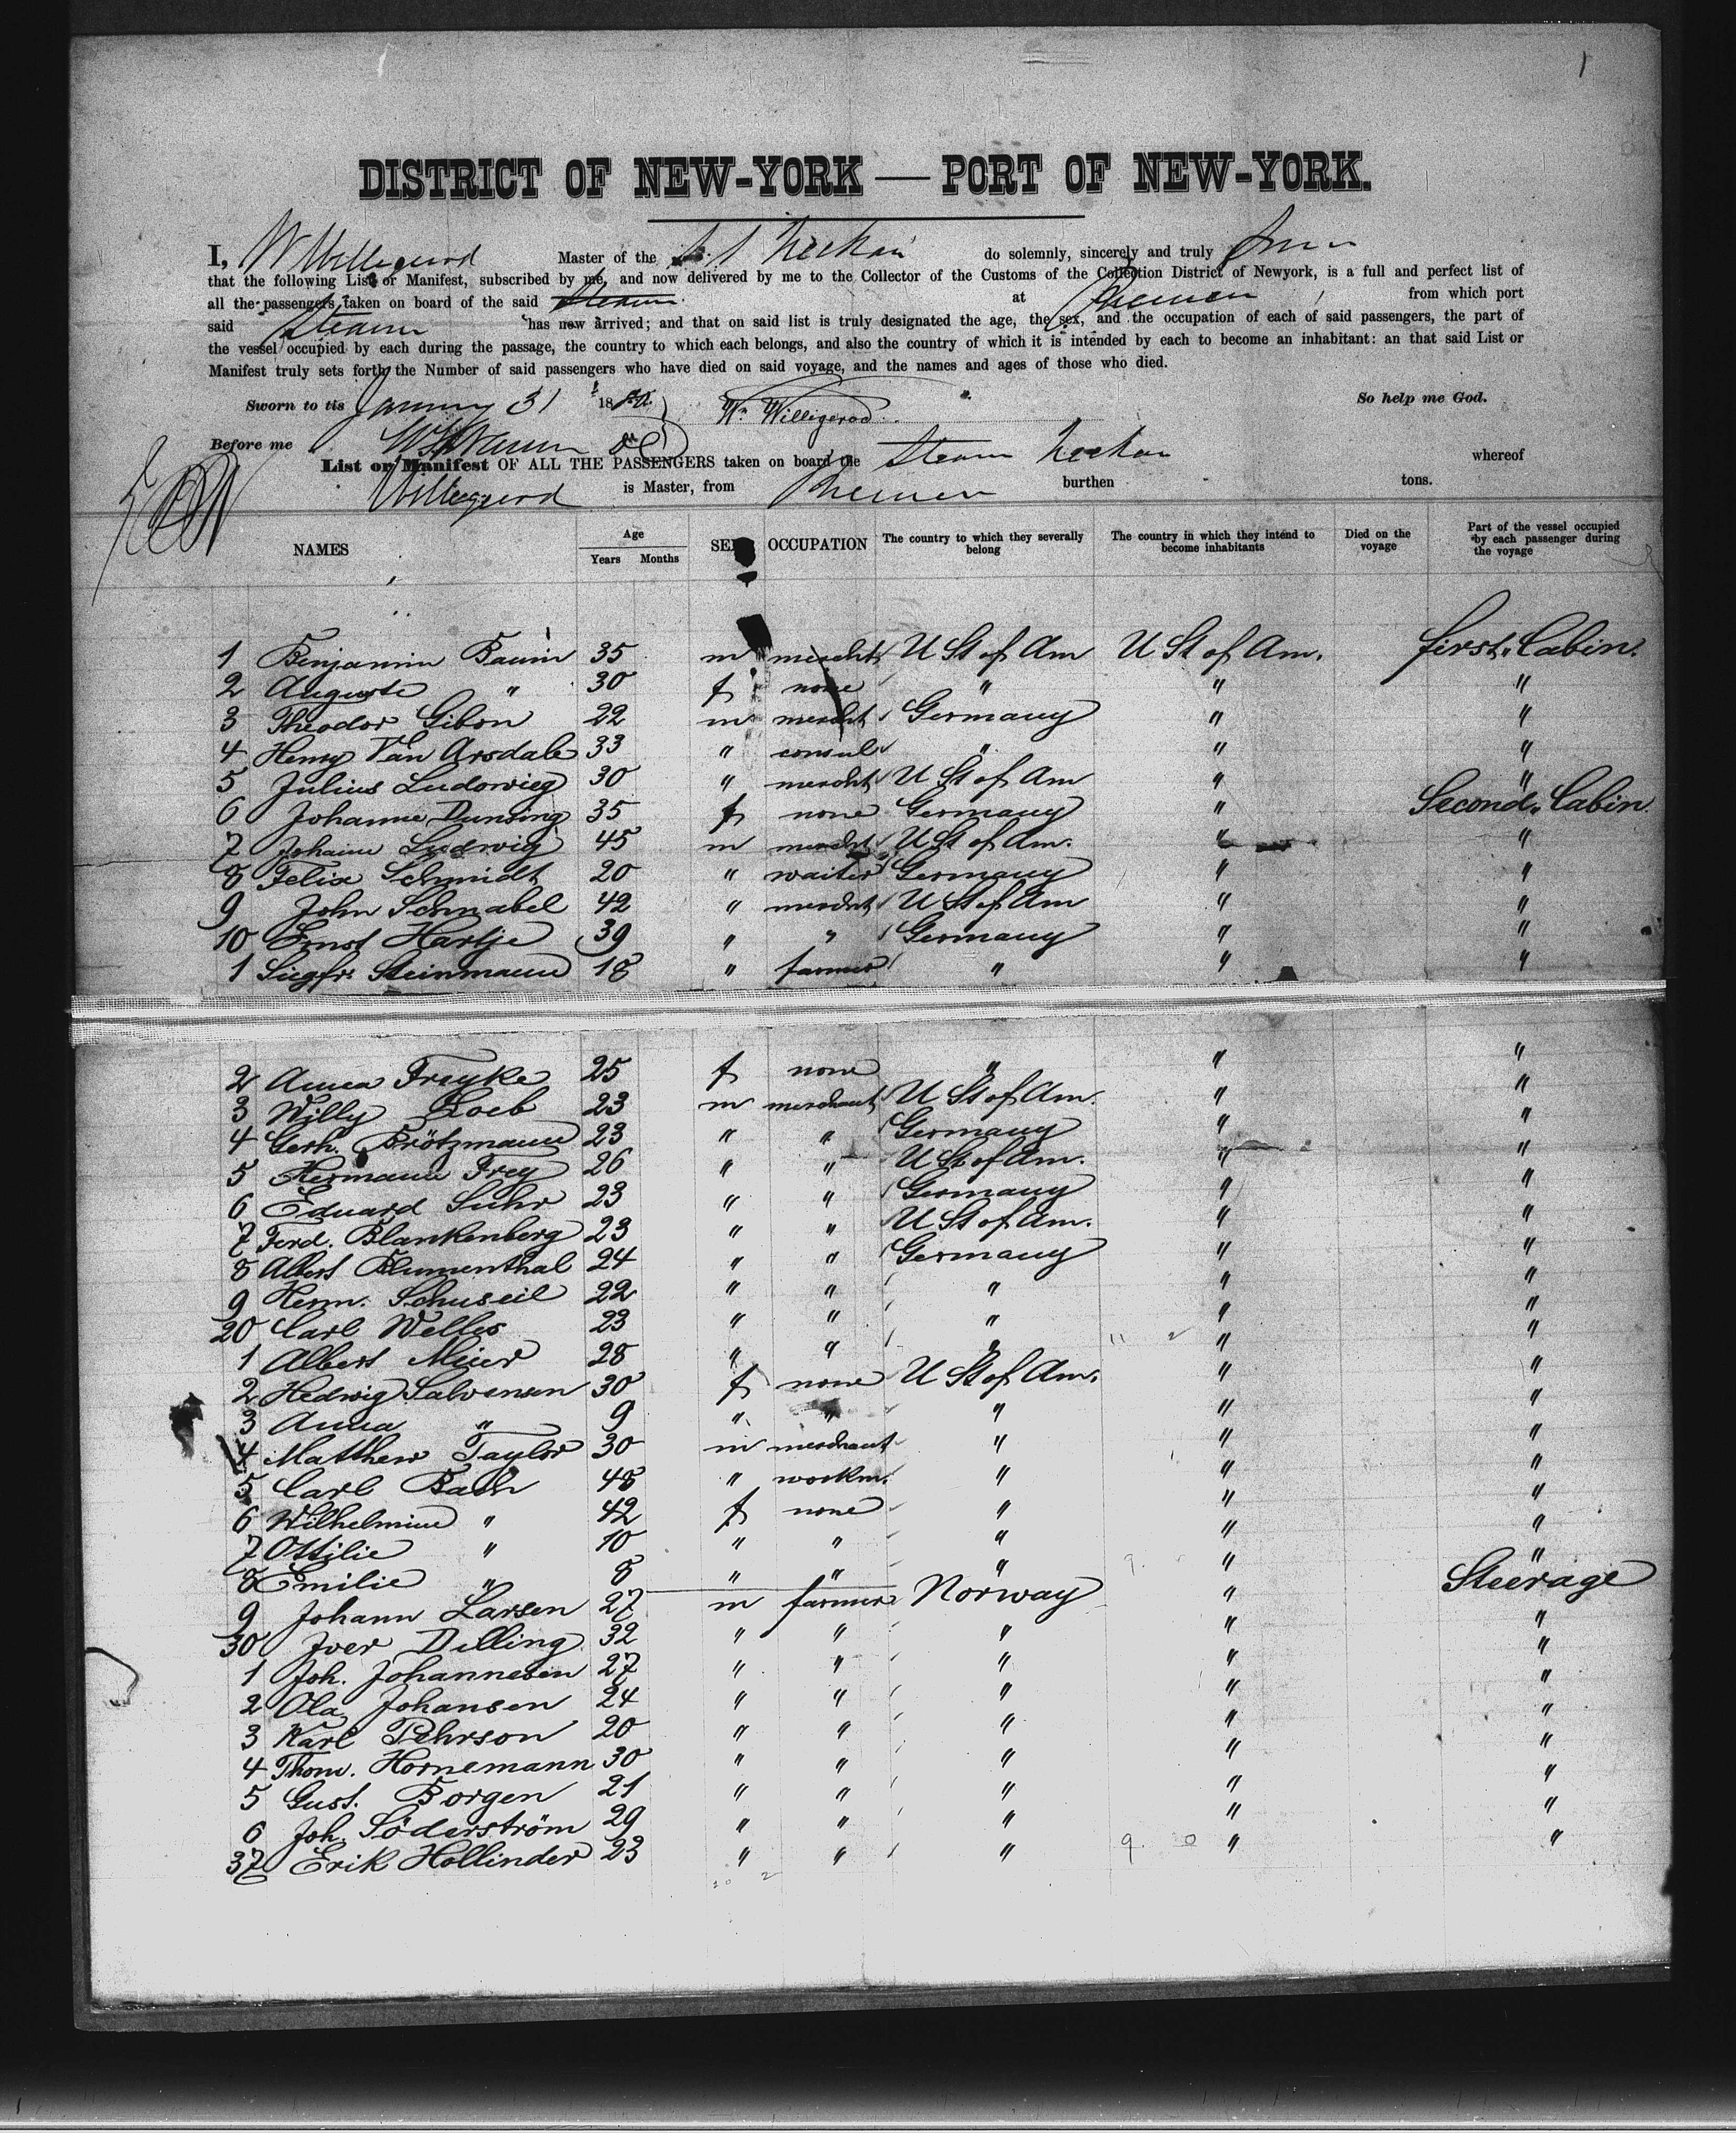 1
DISTRICT OF NEW-YORK — PORT OF NEW-YORK.
I, W Willigerod Master of the S. S. Neckar do solemnly, sincerely and truly
that the following List or Manifest, subscribed by me, and now delivered by me to the Collector of the Customs of the Collection District of Newyork, is a full and perfect list of
all the passengers taken on board of the said Steamer at Bremen from which port
said Steamer has now arrived; and that on said list is truly designated the age, the sex, and the occupation of each of said passengers, the part of
the vessel occupied by each during the passage, the country to which each belongs, and also the country of which it is intended by each to become an inhabitant: an that said List or
Manifest truly sets forth the Number of said passengers who have died on said voyage, and the names and ages of those who died.
Sworn to tis January 31 18 W. Willigerod. So help me God.
Before me
List or Manifest OF ALL THE PASSENGERS taken on board the Steamer Neckar whereof
Willigerod is Master, from Bremen burthen tons.
NAMES Age Years Months SEX OCCUPATION The country to which they severally belong The country in which they intend to become inhabitants Died on the voyage Part of the vessel occupied by each passenger during the voyage
1 Benjamin Baum 35 m mercht U St of Am U St of Am. first Cabin.
2 Auguste " 30 f none " " "
3 Theodor Gibon 22 m mercht Germany " "
4 Henry Van Arsdale 33 " consul " " "
5 Julius Ludowieg 30 " mercht U St of Am " "
6 Johanne Dunsing 35 f none Germany " Second Cabin
7 Johann Ludwig 45 m mercht U St of Am. " "
8 Felix Schmidt 20 " waiter Germany " "
9 John Schnabel 42 " mercht U St of Am " "
10 Ernst Hartje 39 " " Germany " "
1 Siegfr. Steinmann 18 " farmer " " "
2 Anna Freyke 25 f none " " "
3 Willy Loeb 23 m merchant U St of Am. " "
4 Gerh. Brötzmann 23 " " Germany " "
5 Hermann Frey 26 " " U St of Am. " "
6 Eduard Suhr 23 " " Germany " "
7 Ferd. Blankenberg 23 " " U St of Am. " "
8 Albert Blumenthal 24 " " Germany " "
9 Herm. Schuseil 22 " " " " "
20 Carl Welles 23 " " " " "
1 Albert Meier 28 " " " " "
2 Hedwig Salvensen 30 f none U St of Am. " "
3 Anna " 9 " " " " "
4 Matthew Taylor 30 m merchant " " "
5 Carl Bach 48 " workm. " " "
6 Wilhelmine " 42 f none " " "
7 Ottilie " 10 " " " " "
8 Emilie " 8 " " " "
9 Johann Larsen 27 m farmer Norway " Steerage
30 Iver Dilling 32 " " " " "
1 Joh. Johannesen 27 " " " " "
2 Ola Johansen 24 " " " " "
3 Karl Pehrson 20 " " " " "
4 Thom. Hornemann 30 " " " " "
5 Gust. Borgen 21 " " " " "
6 Joh. Söderström 29 " " " " "
37 Erik Hollinder 23 " " " " "